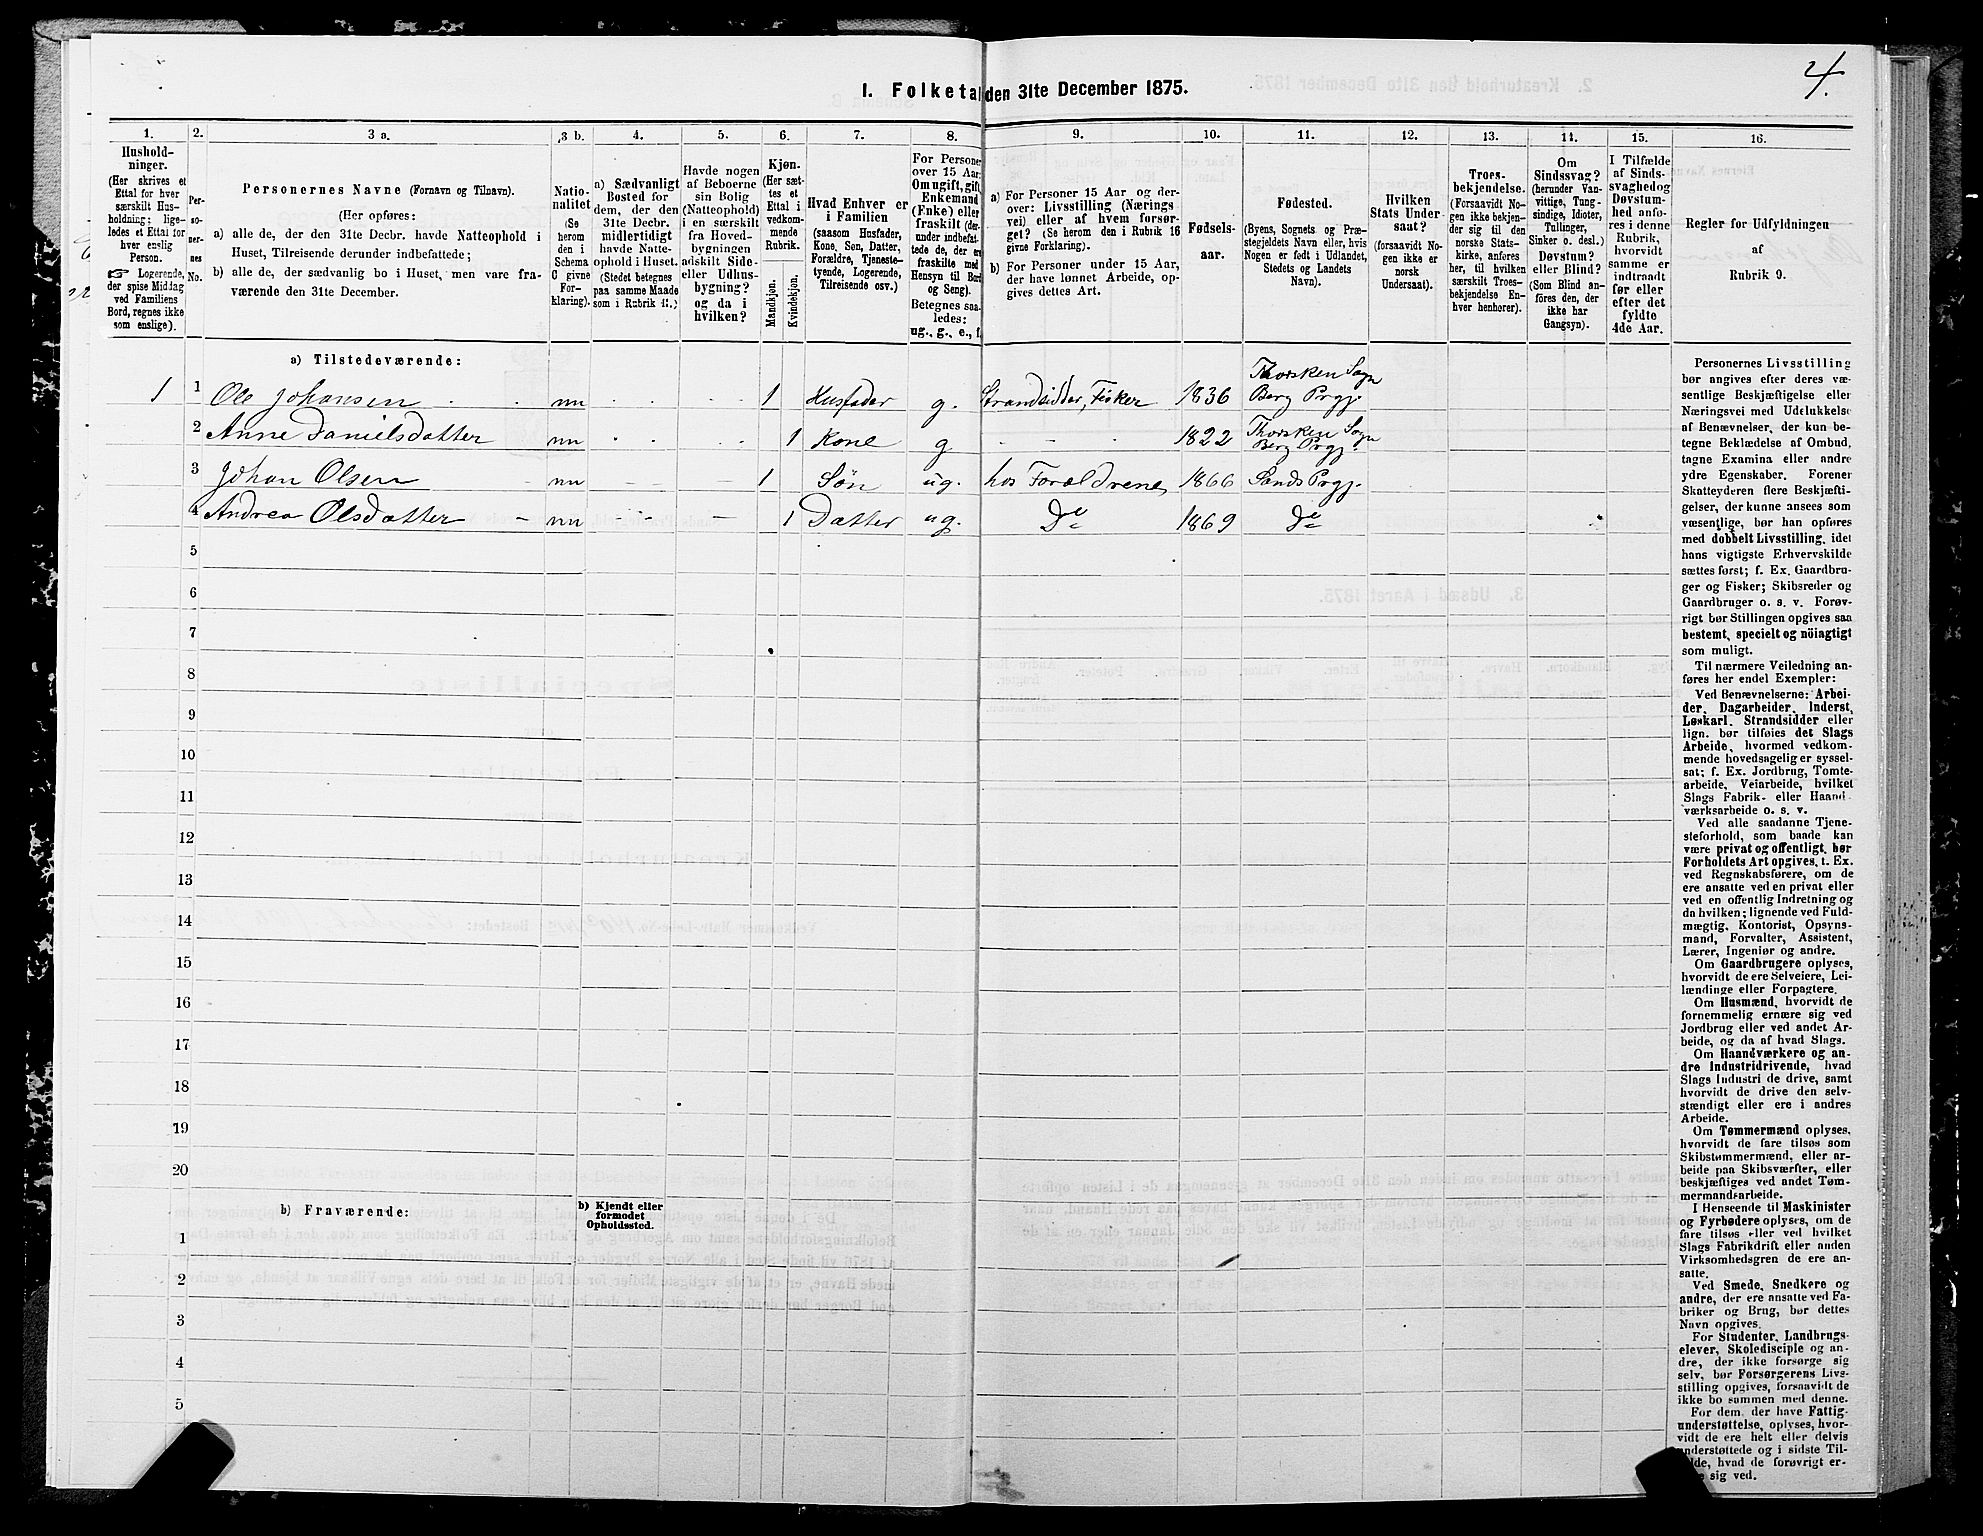 4.
1. Folketal den 31te December 1875.
1. 2. 3 a. 3 b. 4. 5. 6. 7. 8. 9. 10. 11. 12. 13. 14. 15. 16.
Hushold-
ninger.
(Her skrives et
Ettal for hver
særskilt Hus-
holdning; lige-
ledes et Ettal for
hver enslig
Person.
☞ Logerende,
der spise Middag
ved Familiens
Bord, regnes ikke
som enslige).
Per-
so-
ner-
nes
No.
Personernes Navne (Fornavn og Tilnavn).
(Her opføres:
a) alle de, der den 31te Decbr. havde Natteophold i
Huset, Tilreisende derunder indbefattede;
b) alle de, der sædvanlig bo i Huset, men vare fra-
værende den 31te December.
Natio-
nalitet
(Se
herom
den i
Schema
C givne
For-
klaring).
a) Sædvanligt
Bosted for
dem, der den
31te Decbr.
midlertidigt
havde Natte-
ophold i Huset.
(Stedet betegnes
paa samme Maade
som i Rubrik 11.)
Havde nogen
af Beboerne
sin Bolig
(Natteophold)
i en særskilt
fra Hoved-
bygningen
adskilt Side-
eller Udhus-
bygning?
og da i
hvilken?
Kjøn.
(Her sæt-
tes et
Ettal i
vedkom-
mende
Rubrik.
Mandkjøn.
Kvindekjøn.
Hvad Enhver er
i Familien
(saasom Husfader,
Kone, Søn, Datter,
Forældre, Tjeneste-
tyende, Logerende,
Tilreisende osv.)
For Personer
over 15 Aar:
Om ugift, gift,
Enkemand
(Enke) eller
fraskilt (der-
under indbefat-
tede de, der ere
fraskilte med
Hensyn til Bord
og Seng).
Betegnes saa-
ledes:
ug., g., e., f.
a) For Personer 15 Aar og der-
over: Livsstilling (Nærings
vei) eller af hvem forsør-
get? (Se herom den i Rubrik 16
givne Forklaring).
b) For Personer under 15 Aar,
der have lønnet Arbeide, op-
gives dettes Art.
Fødsels-
aar.
Fødested.
(Byens, Sognets og Præ-
stegjeldets Navn eller, hvis
Nogen er født i Udlandet,
Stedets og Landets
Navn).
Hvilken
Stats Under-
saat?
(forsaavidt No-
gen ikke er
norsk
Undersaat).
Troes-
bekjendelse.
(Forsaavidt No-
gen ikke bekjen-
der sig til den
norske Stats-
kirke, anføres
her, til hvilken
særskilt Troes-
bekjendelse En-
hver henhører).
Om
Sindssvag?
(herunder Van-
vittige, Tung-
sindige, Idioter,
Tullinger,
Sinker o. desl.)
Døvstum?
eller Blind?
(Som Blind an-
føres den, der
ikke har
Gangsyn).
I Tilfælde
af Sinds-
svaghed og
Døvstum-
hed anfø-
res i denne
Rubrik,
hvorvidt
samme er
indtraadt
før eller
efter det
fyldte
4de Aar.
Regler for Udfyldningen
af
Rubrik 9.
a) Tilstedeværende:
1 1 Ole Johansen nn 1 Husfader g. Strandsidder, Fisker 1836 Thorsken Sogn Berg Prgj.
2 Anne Danielsdatter nn 1 Kone g - - - 1822 Thorsken Sogn Berg Prgj.
3 Johan Olsen nn 1 Søn ug. hos Forældrene 1866 Sands Prgj.
4 Andrea Olsdatter nn 1 Datter ug. Do 1869 Do
5
6
7
8
9
10
11
12
13
14
15
16
17
18
19
20
b) Fraværende: b) Kjendt eller
formodet
Opholdssted.
1
2
3
4
5
Personernes Livsstilling
bør angives efter deres væ-
sentlige Beskjæftigelse eller
Næringsvei med Udelukkelse
af Benævnelser, der kun be-
tegne Beklædelse af Ombud,
tagne Examina eller andre
ydre Egenskaber. Forener
Skatteyderen flere Beskjæfti-
gelser, der kunne ansees som
væsentlige, bør han opføres
med dobbelt Livsstilling, idet
hans vigtigste Erhvervskilde
sættes først; f. Ex. Gaardbru-
ger og Fisker; Skibsreder og
Gaardbruger o. s. v. Forøv-
rigt bør Stillingen opgives saa
bestemt, specielt og nöiagtigt
som muligt.
Til nærmere Veiledning an-
føres her endel Exempler:
Ved Benævnelserne: Arbei-
der, Dagarbeider, Inderst,
Løskarl, Strandsidder eller
lign. bør tilføies det Slags
Arbeide, hvormed vedkom-
mende hovedsagelig er syssel-
sat; f. Ex. Jordbrug, Tomte-
arbeide, Veiarbeide, hvilket
Slags Fabrik- eller Haand-
værksarbeide o. s. v.
Ved alle saadanne Tjene-
steforhold, som baade kan
være privat og offentligt, bør
Forholdets Art opgives, t. Ex.
ved Regnskabsførere, om de
ere ansatte ved en privat eller
ved en offentlig Indretning og
da hvilken; lignende ved Fuld-
mægtig, Kontorist, Opsyns-
mand, Forvalter, Assistent,
Lærer, Ingeniør og andre.
Om Gaardbrugere oplyses,
hvorvidt de ere Selveiere, Lei-
lændinge eller Forpagtere.
Om Husmænd, hvorvidt de
fornemmelig ernære sig ved
Jordbrug eller ved andet Ar-
beide, og da af hvad Slags.
Om Haandværkere og an-
dre Industridrivende, hvad
Slags Industri de drive, samt
hvorvidt de drive den selv-
stændigt eller ere i andres
Arbeide.
Om Tømmermænd oplyses,
hvorvidt de fare tilsøs som
Skibstømmermænd, eller ar-
beide paa Skibsværfter, eller
beskjæftiges ved andet Tøm-
mermandsarbeide.
I Henseende til Maskinister
og Fyrbødere oplyses, om de
fare tilsøs eller ved hvilket
Slags Fabrikdrift eller anden
Virksomhedsgren de ere an-
satte.
Ved Smede, Snedkere og
andre, der ere ansatte ved Fa-
briker og Brug, bør dettes
Navn opgives.
For Studenter, Landbrugs-
elever, Skoledisciple og an-
dre, der ikke forsørge sig
selv, bør Forsørgerens Livs-
stilling opgives, forsaavidt de
ikke bo sammen med denne.
For dem, der have Fattig-
understøttelse, oplyses, hvor-
vidt de ere helt eller delvis
understøttede og i sidste Til-
fælde, hvad de forøvrigt er-
nære sig ved.